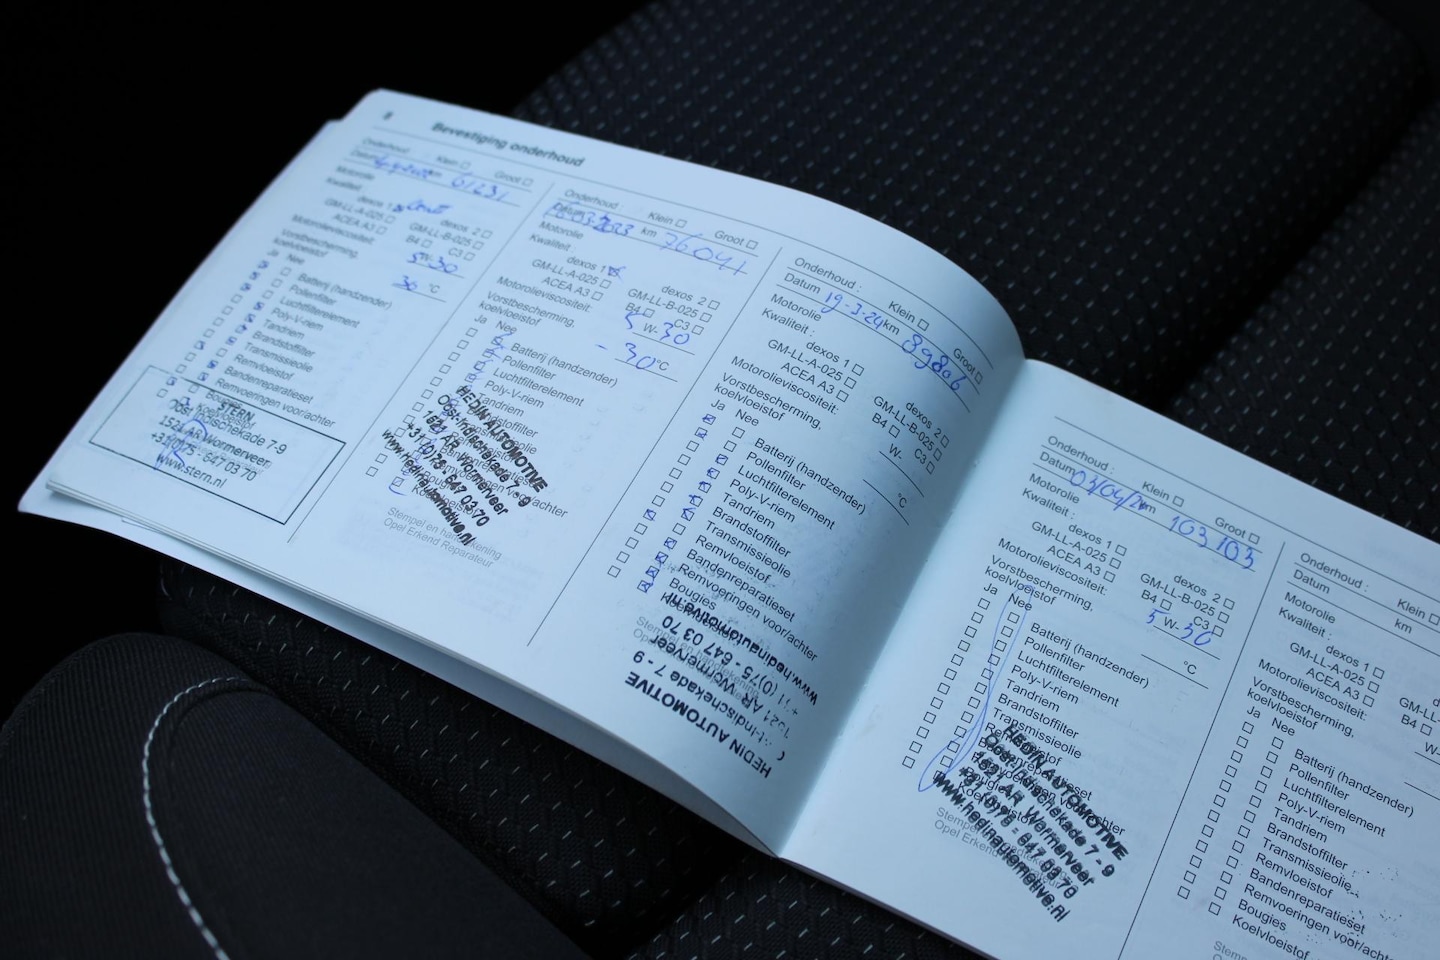 8 Bevestiging onderhoud
Onderhoud: Klein Groot
Datum km 61231
Motorolie
Kwaliteit
dexos 1 dexos 2
GM-LL-A-025 GM-LL-B-025
ACEA A3 B4 C3
Motorolieviscositeit: 5W-30
Vorstbescherming,
koelvloeistof 36 °C
Ja Nee
Batterij (handzender)
Pollenfilter
Luchtfilterelement
Poly-V-riem
Tandriem
Brandstoffilter
Transmissieolie
Remvloeistof
Bandenreparatieset
Remvoeringen voor/achter
Bougies
Koelvloeistof
STERN
Oost Indischekade 7-9
1521 AR Wormerveer
+31(0)75 - 647 03 70
www.stern.nl
Onderhoud : Klein Groot
Datum 03-2023 km 76041
Motorolie
Kwaliteit :
dexos 1 dexos 2
GM-LL-A-025 GM-LL-B-025
ACEA A3 B4 C3
Motorolieviscositeit: 5 W-30
Vorstbescherming,
koelvloeistof - 30 °C
Ja Nee
Batterij (handzender)
Pollenfilter
Luchtfilterelement
Poly-V-riem
Tandriem
HEDIN AUTOMOTIVE
Oost-Indischekade 7 - 9
1521 AR Wormerveer
+31 (0)75 - 647 03 70
www.hedinautomotive.nl
Stempel en handtekening
Opel Erkend Reparateur
Onderhoud : Klein Groot
Datum 19-3-24 km 89806
Motorolie
Kwaliteit :
dexos 1 dexos 2
GM-LL-A-025 GM-LL-B-025
ACEA A3 B4 C3
Motorolieviscositeit: W-
Vorstbescherming,
koelvloeistof °C
Ja Nee
Batterij (handzender)
Pollenfilter
Luchtfilterelement
Poly-V-riem
Tandriem
Brandstoffilter
Transmissieolie
Remvloeistof
Bandenreparatieset
Remvoeringen voor/achter
Bougies
Koelvloeistof
HEDIN AUTOMOTIVE
-Indischekade 7 - 9
1521 AR Wormerveer
(0)75 - 647 03 70
www.hedinautomotive.nl
Onderhoud : Klein Groot
Datum 03/04/2 km 103103
Motorolie
Kwaliteit :
dexos 1 dexos 2
GM-LL-A-025 GM-LL-B-025
ACEA A3 B4 C3
Motorolieviscositeit: 5 W-30
Vorstbescherming,
koelvloeistof °C
Ja Nee
Batterij (handzender)
Pollenfilter
Luchtfilterelement
Poly-V-riem
Tandriem
Brandstoffilter
Transmissieolie
HEDIN AUTOMOTIVE
Oost-Indischekade 7 - 9
1521 AR Wormerveer
+31 (0)75 - 647 03 70
www.hedinautomotive.nl
Onderhoud : Klein
Datum km
Motorolie
Kwaliteit :
dexos 1
GM-LL-A-025
ACEA A3 B4
Motorolieviscositeit: W-
Vorstbescherming,
koelvloeistof
Ja Nee
Batterij (handzender)
Pollenfilter
Luchtfilterelement
Poly-V-riem
Tandriem
Brandstoffilter
Transmissieolie
Remvloeistof
Bandenreparatieset
Remvoeringen voor/achter
Bougies
Koelvloeistof